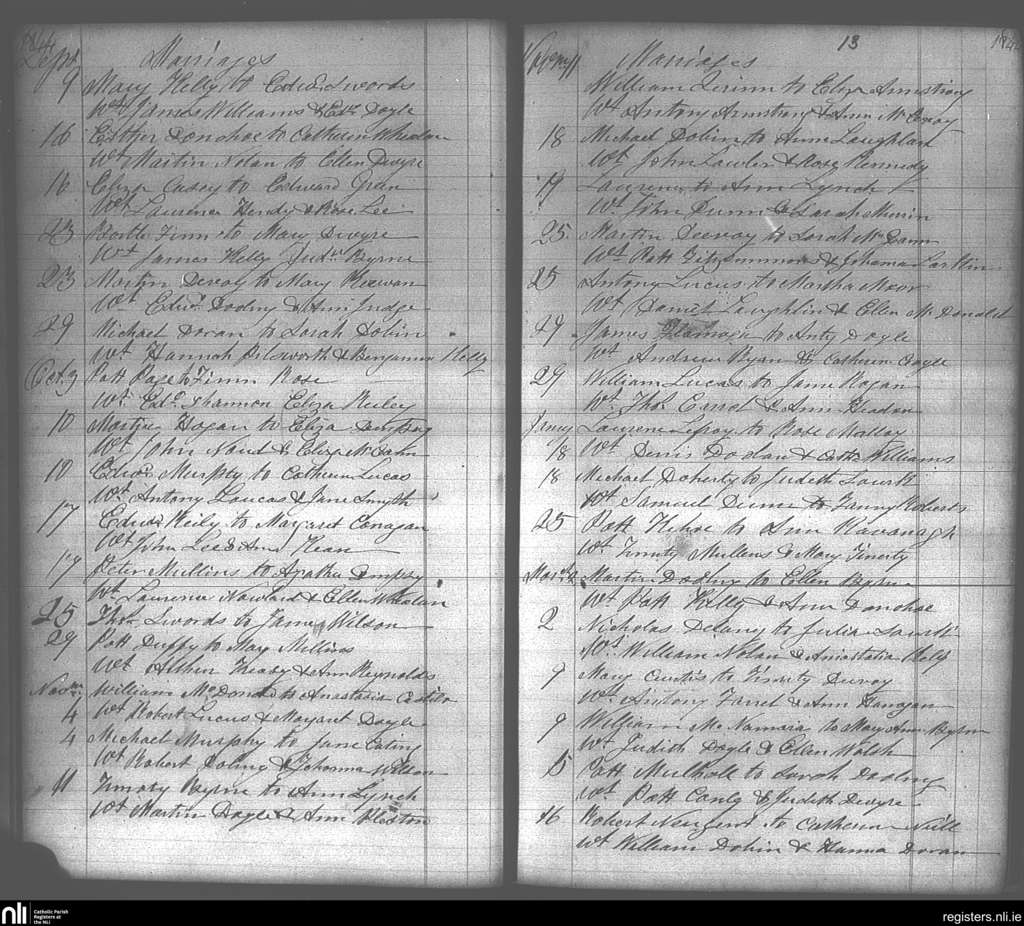 1844
Sept Marriages
9 Mary Kelly to Edwd Swords
Wt James Williams & Doyle
16 Esther Donohoe to Catherin Wheelan
Wt Martin Nolan to Ellen Dwyre
16 Eliza Casey to Edward Green
Wt Laurence Hendy & Rose Lee
23 Barth Finn to Mary Dwyre
Wt James Kelly Judh Byrne
23 Martin Devoy to Mary Keewan
Wt Edwd Dooling & Ann Judge
29 Michael Doran to Sarah Dobin
Wt Hannah Pilsworth & Benjamin Kelly
Oct 3 Patt Page to Finn Rose
Wt Edd Shannon Eliza Keiley
10 Martin Hogan to Eliza Dempsey
Wt John Neud & Eliza
10 Edwd Murphy to Catherin Lucas
Wt Antony Loucas & Jane Smyth
17 Edwd Keily to Margaret Conagan
Wt John Lee & Ann Kean
17 Peter Mullins to Agatha Dempsy
Wt Laurence Nowland & Ellen Whelan
25 Thos Swords to Jane Wilson
29 Patt Duffy to Mary Millins
Wt Arthur Heady & Ann Reynolds
Novr William McDonald to Anastasia Costello
4 Wt Robert Lucus & Margaret Doyle
4 Michael Murphy to Jane Ealing
Wt Robert Doling & Johanna Willson
11 Timoty Byrne to Ann Lynch
Wt Martin Doyle & Ann Weston
13
Marriages
William Quinn to Eliza Armstrong
Wt Antony Armstrong & Ann McEvoy
18 Michael Dobin to Anne Laughlan
Wt John Lawler & Rose Kennedy
19 Laurence to Ann Lynch
Wt John Dunn & Sarah Murrin
25 Martin Deevoy to Sarah McDann
Wt Patt Fitzsimmons & Johanna Larkin
25 Antony Lucus to Martha Moor
Wt Daniel Laughlin & Ellen McDonald
29 James to Anty Doyle
Wt Andrew Ryan & Catherin Doyle
29 William Lucas to Jane Hogan
Wt Thos Carrol & Ann Headon
Jany Laurence Leroy to Rose Mallay
18 Wt Denis Doolan & Cathr Williams
18 Michael Doherty to Judith
Wt Samuel Dunne to Fanny Roberts
25 Patt Kehoe to Ann Kavanagh
Wt Timity Mullens & Mary Finerty
March 2 Martin Dooling to Ellen Byrne
Wt Patt Kelly & Ann Donohoe
2 Nicholas Delany to Julia
Wt William Nolan & Aniastatia Kelly
9 Mary Curtis to Timoty Deevoy
Wt Antony Farrel & Ann Hanagan
9 William McNamara to Mary Ann Byrne
Wt Judith Doyle & Ellen Walsh
15 Patt Mulhall to Sarah Dooling
Wt Patt Conly & Judith Dwyre
16 Robert to Catherin Neill
Wt William Dobin & Hanna Doran
nli Catholic Parish
Registers at
the NLI
registers.nli.ie